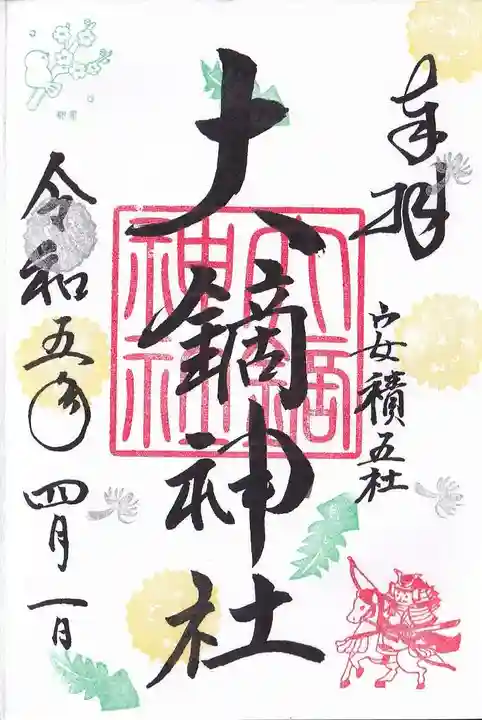 奉拝
安積五社
大鏑神社
大鏑
神社
令和五年四月一日